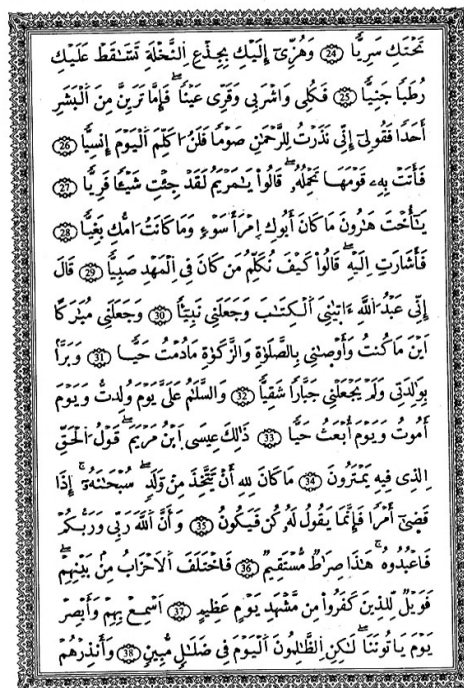 تَحْتَكِ سَرِيًّا 24 وَهُزِّىٓ إِلَيْكِ بِجِذْعِ اِ۬لنَّخْلَةِ تَسَّٰقَطْ عَلَيْكِ
رُطَبًا جَنِيًّا 25 فَكُلِى وَاشْرَبِى وَقَرِّى عَيْنًا فَإِمَّا تَرَيِنَّ مِنَ اَ۬لْبَشَرِ
أَحَدًا فَقُولِىٓ إِنِّى نَذَرْتُ لِلرَّحْمَٰنِ صَوْمًا فَلَنُ اكَلِّمَ اَ۬لْيَوْمَ إِنسِيًّا 26
فَأَتَتْ بِهِۦ قَوْمَهَا تَحْمِلُهُۥ قَالُوا۟ يَٰمَرْيَمُ لَقَدْ جِئْتِ شَيْـًٔا فَرِيًّا 27
يَٰٓأُخْتَ هَٰرُونَ مَا كَانَ أَبُوكِ اِ۪مْرَأَ سَوْءٍ وَمَا كَانَتُ امُّكِ بَغِيًّا 28
فَأَشَارَتِ اِلَيْهِ قَالُوا۟ كَيْفَ نُكَلِّمُ مَن كَانَ فِى اِ۬لْمَهْدِ صَبِيًّا 29 قَالَ
إِنِّى عَبْدُ اُ۬للَّهِ ءَاتَىٰنِىَ اَ۬لْكِتَٰبَ وَجَعَلَنِى نَبِيٓـًٔا 30 وَجَعَلَنِى مُبَٰرَكًا
اَيْنَ مَا كُنتُ وَأَوْصَٰنِى بِالصَّلَوٰةِ وَالزَّكَوٰةِ مَا دُمْتُ حَيًّا 31 وَبَرًّۢا
بِوَٰلِدَتِى وَلَمْ يَجْعَلْنِى جَبَّارًا شَقِيًّا 32 وَالسَّلَٰمُ عَلَىَّ يَوْمَ وُلِدتُّ وَيَوْمَ
أَمُوتُ وَيَوْمَ أُبْعَثُ حَيًّا 33 ذَٰلِكَ عِيسَى اَ۪بْنُ مَرْيَمَ قَوْلُ اُ۬لْحَقِّ
اِ۬لذِى فِيهِ يَمْتَرُونَ 34 مَا كَانَ لِلهِ أَنْ يَّتَّخِذَ مِنْ وَّلَدٍ سُبْحَٰنَهُۥٓ إِذَا
قَضَىٰٓ أَمْرًا فَإِنَّمَا يَقُولُ لَهُۥ كُن فَيَكُونُ 35 وَأَنَّ اَ۬للَّهَ رَبِّى وَرَبُّكُمْ
فَاعْبُدُوهُ هَٰذَا صِرَٰطٌ مُّسْتَقِيمٌ 36 فَاخْتَلَفَ اَ۬لَاحْزَابُ مِنۢ بَيْنِهِمْ
فَوَيْلٌ لِّلذِينَ كَفَرُوا۟ مِن مَّشْهَدِ يَوْمٍ عَظِيمٍ 37 اَسْمِعْ بِهِمْ وَأَبْصِرْ
يَوْمَ يَاتُونَنَا لَٰكِنِ اِ۬لظَّٰلِمُونَ اَ۬لْيَوْمَ فِى ضَلَٰلٍ مُّبِينٍ 38 وَأَنذِرْهُمْ